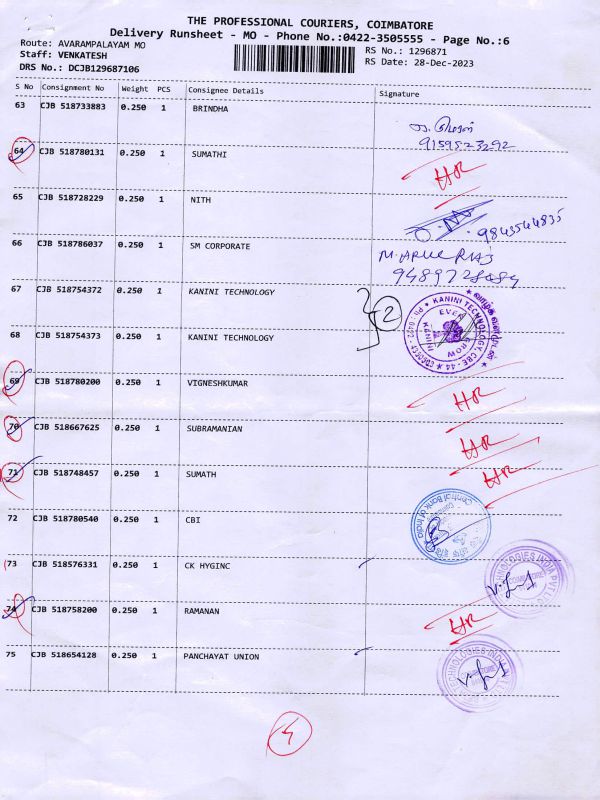 THE PROFESSIONAL COURIERS, COIMBATORE
Delivery Runsheet - MO - Phone No.:0422-3505555 - Page No.:6
Route: AVARAMPALAYAM MO
RS No.: 1296871
Staff: VENKATESH
RS Date: 28-Dec-2023
DRS No.: DCJB129687106
S No Consignment No Weight PCS Consignee Details Signature
63 CJB 518733883 0.250 1 BRINDHA
9159523292
64 CJB 518780131 0.250 1 SUMATHI HR
65 CJB 518728229 0.250 1 NITH
9843544835
66 CJB 518786037 0.250 1 SM CORPORATE M. ARUL RAJ
67 CJB 518754372 0.250 1 KANINI TECHNOLOGY
2
KANINI TECHNOLOGY, CBE-44
EVER GROW KANINI
68 CJB 518754373 0.250 1 KANINI TECHNOLOGY
69 CJB 518780200 0.250 1 VIGNESHKUMAR HR
70 CJB 518667625 0.250 1 SUBRAMANIAN HR
71 CJB 518748457 0.250 1 SUMATH HR
72 CJB 518780540 0.250 1 CBI
Central Bank of India
73 CJB 518576331 0.250 1 CK HYGINC
TECHNOLOGIES INDIA PVT LTD
COIMBATORE
74 CJB 518758200 0.250 1 RAMANAN HR
75 CJB 518654128 0.250 1 PANCHAYAT UNION
TECHNOLOGIES INDIA PVT LTD
COIMBATORE
5